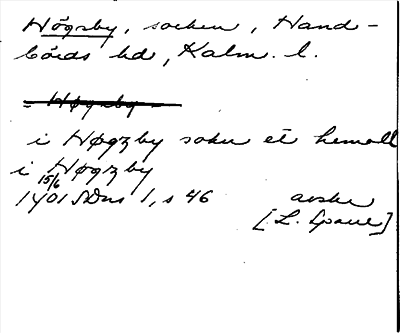 Högsby, socken, Hand-
börds hd, Kalm. l.
Høgzby
i Høgzby sokn et hemall
i Høgzby
15/6
1401 SDns 1, s 46 avskr
[L. Spaue]